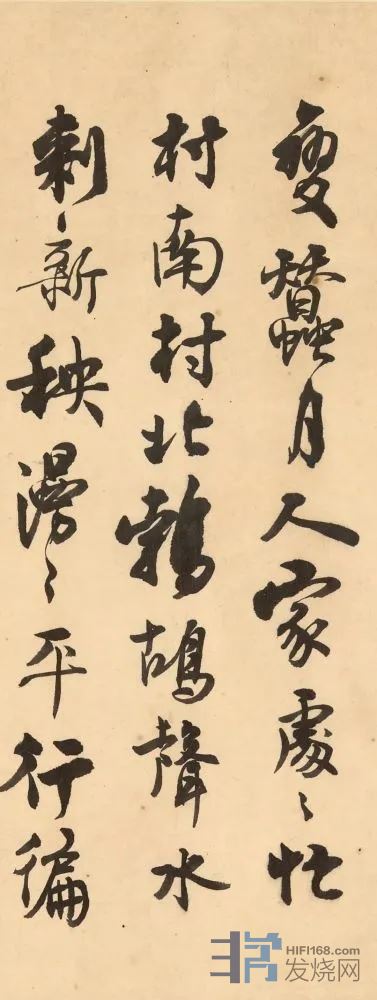 蠶月人家處〻忙
村南村北鵓鴣聲水
刺新秧漫〻平行徧
HIFI168.com
发烧网